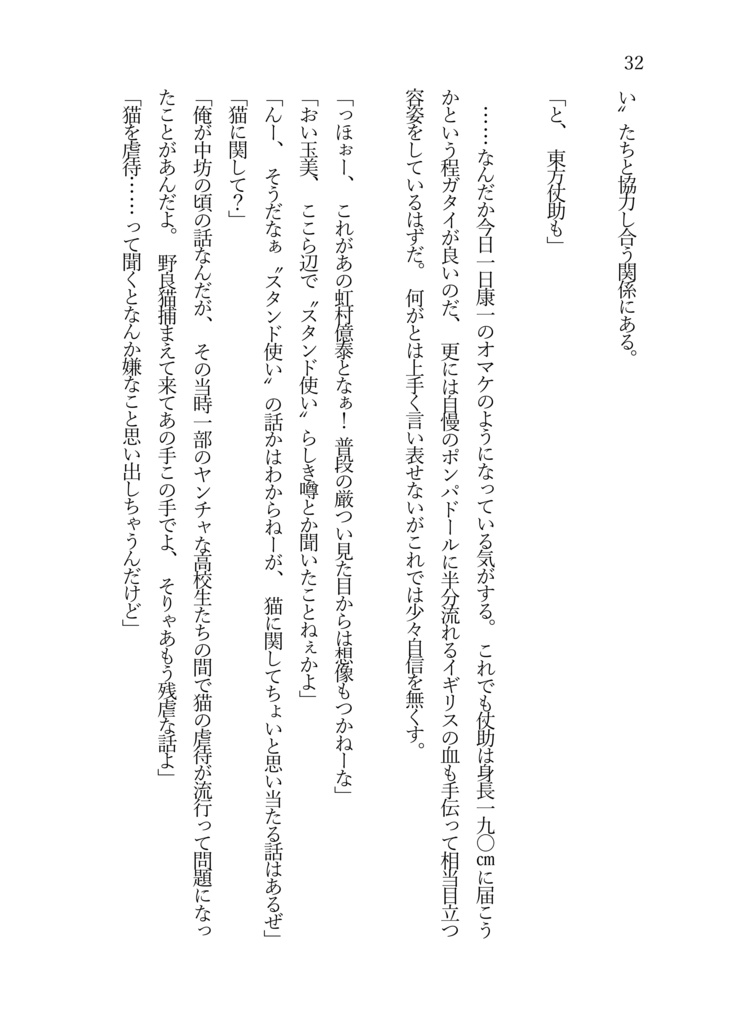 32
い〟たちと協力し合う関係にある。
「と、東方仗助も」
……なんだか今日一日康一のオマケのようになっている気がする。これでも仗助は身長一九〇㎝に届こう
かという程ガタイが良いのだ、更には自慢のポンパドールに半分流れるイギリスの血も手伝って相当目立つ
容姿をしているはずだ。何がとは上手く言い表せないがこれでは少々自信を無くす。
「っほぉー、これがあの虹村億泰となぁ！普段の厳つい見た目からは想像もつかねーな」
「おい玉美、ここら辺で〝スタンド使い〟らしき噂とか聞いたことねぇかよ」
「んー、そうだなぁ〝スタンド使い〟の話かはわからねーが、猫に関してちょいと思い当たる話はあるぜ」
「猫に関して？」
「俺が中坊の頃の話なんだが、その当時一部のヤンチャな高校生たちの間で猫の虐待が流行って問題になっ
たことがあんだよ。野良猫捕まえて来てあの手この手でよ、そりゃあもう残虐な話よ」
「猫を虐待……って聞くとなんか嫌なこと思い出しちゃうんだけど」